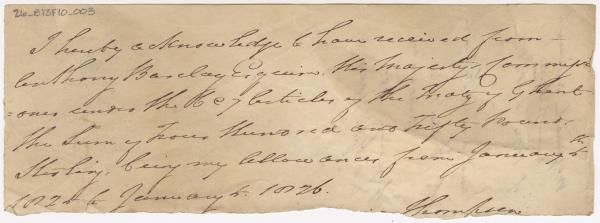 26_B13F10_003
I hereby acknowledge to have received from
Anthony Barclay Esquire, His Majesty's Commissi
=oner under the 6 & 7 Articles of the Treaty of Ghent
the Sum of Four Hundred and Fifty Pounds
Sterling, being my Allowances from January
1825 to January 1826.
Thompson